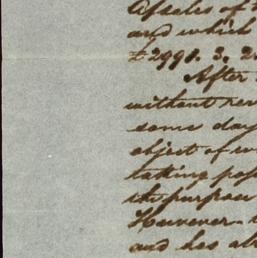 Assales of
and which
£2991. 3. 2
After
without
some day
object of
taking
the purpose
However
and has